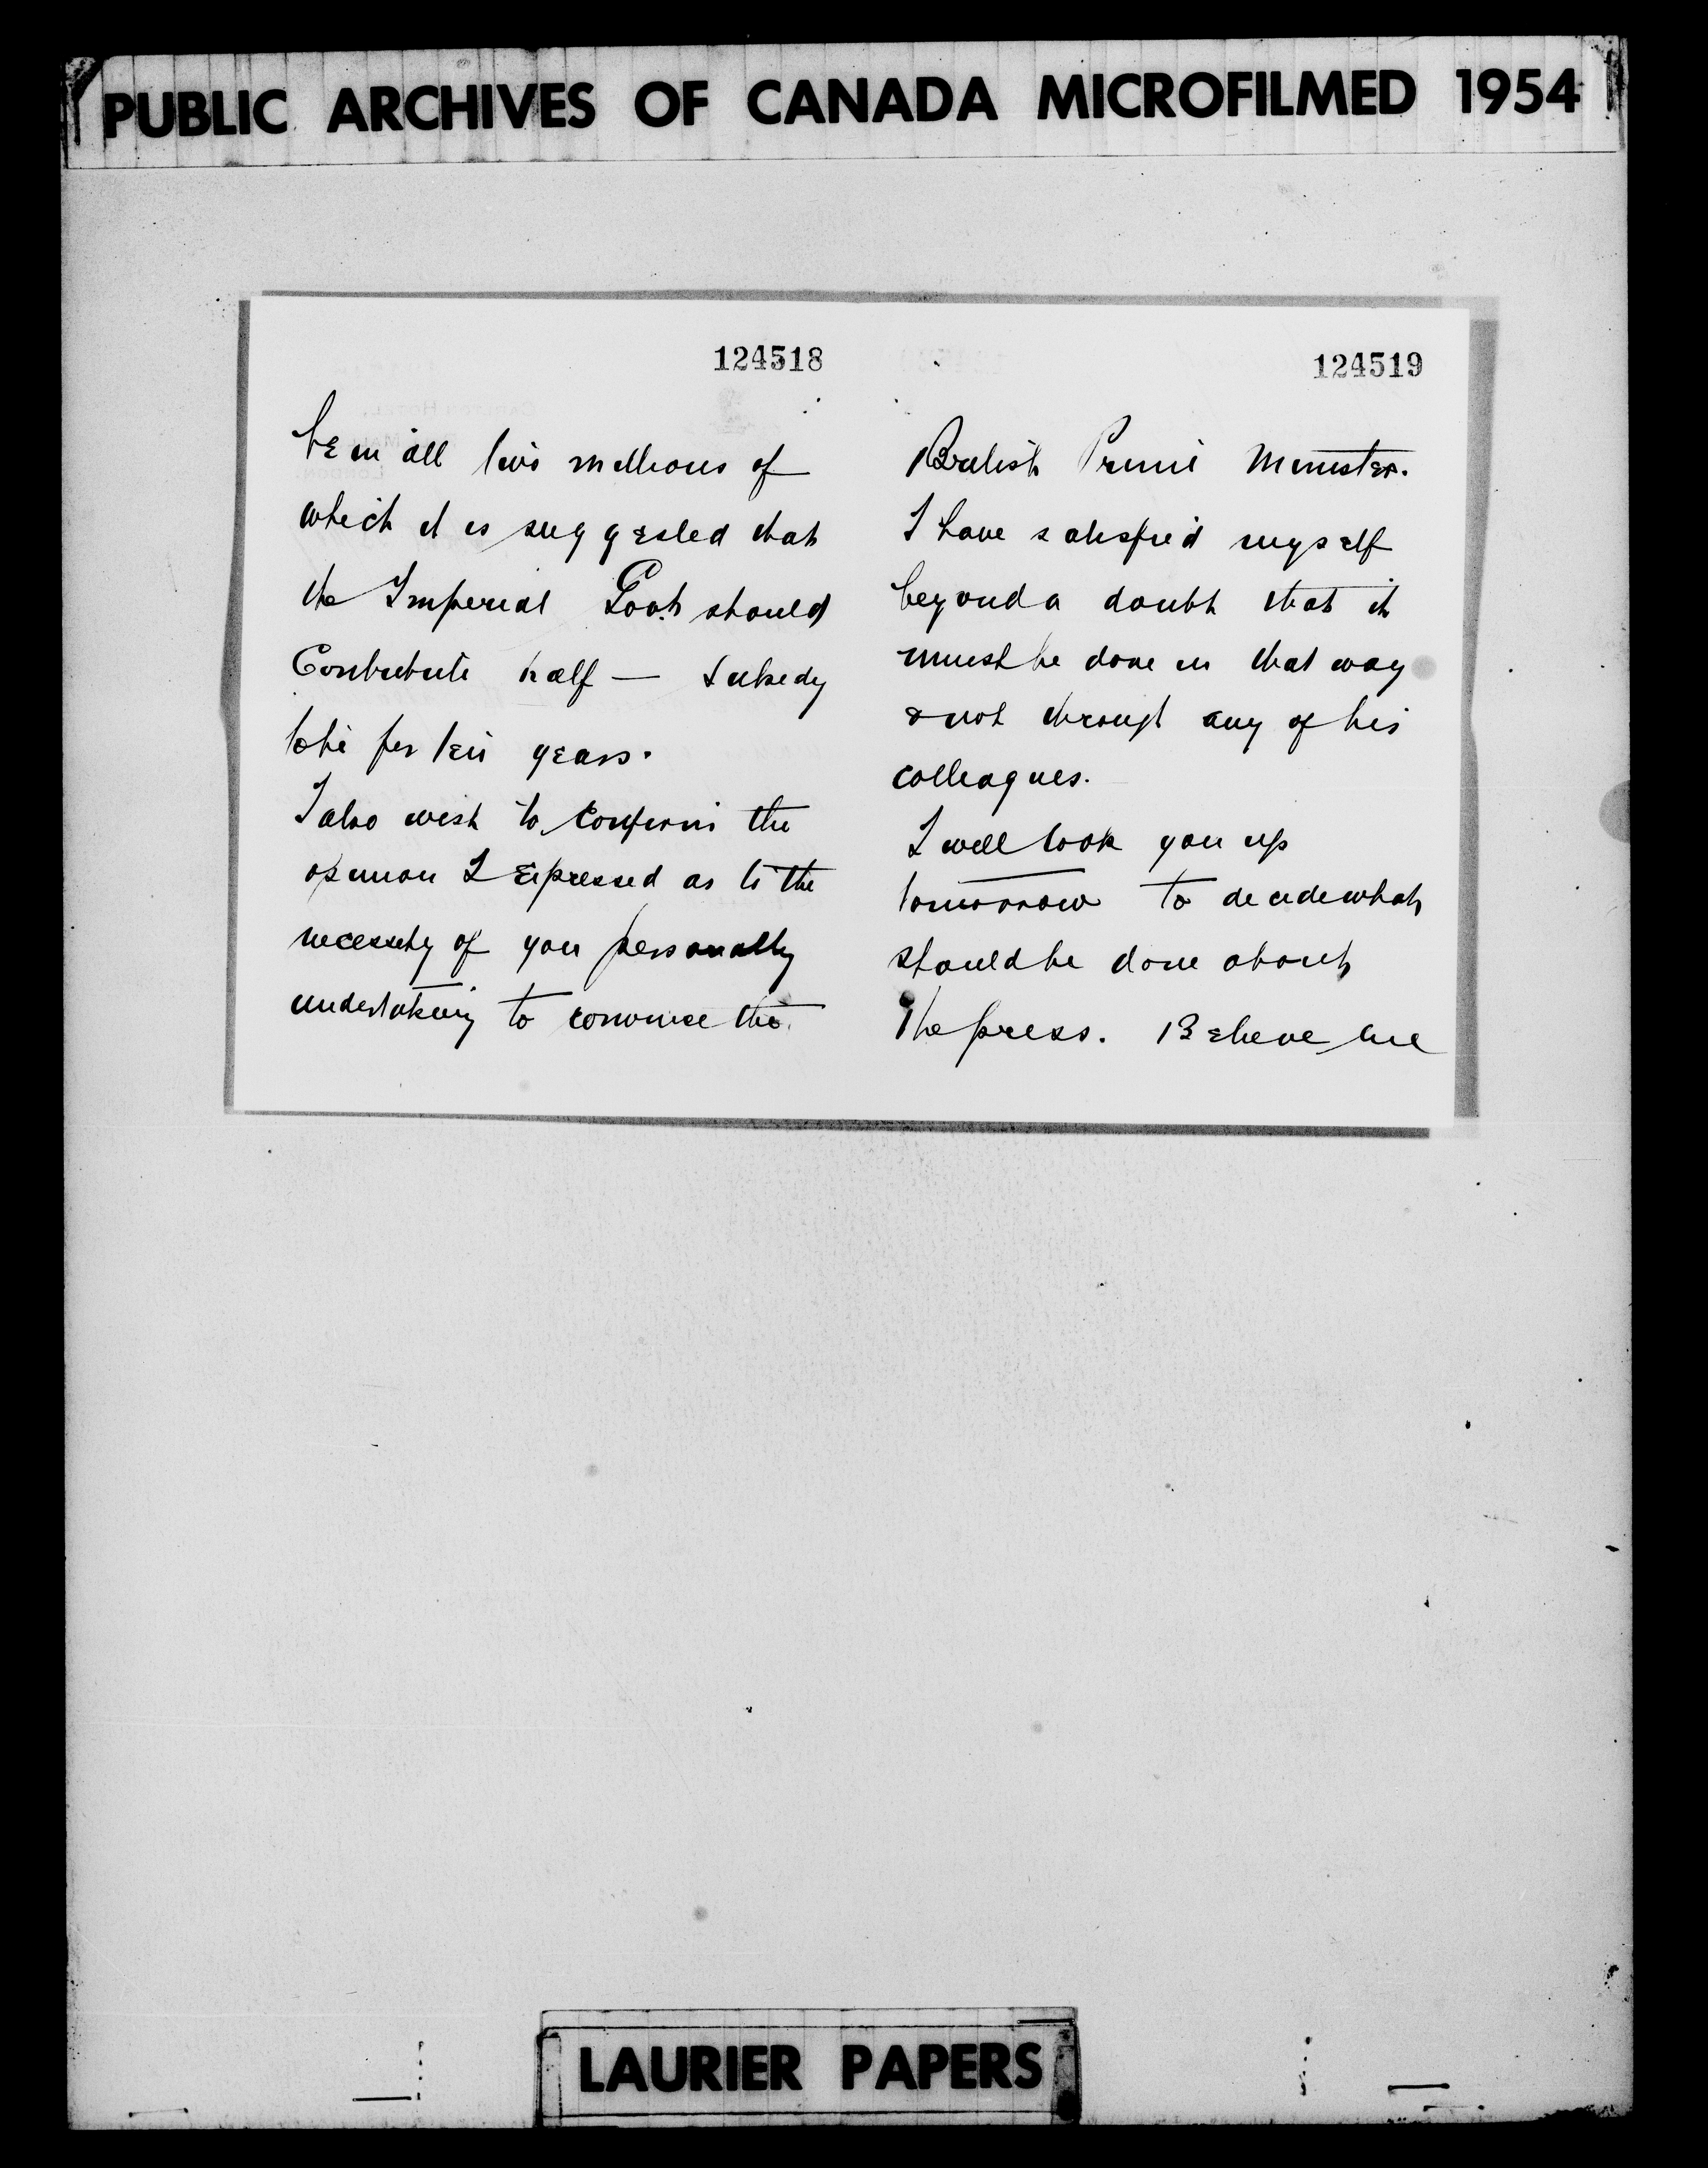 PUBLIC ARCHIVES OF CANADA MICROFILMED 1954
124518
be in all two millions of
which it is suggested that
the Imperial Govt. should
Contribute half — Subsedy
to be for ten years.
I also wish to confirm the
opinion I Expressed as to the
necessity of you personally
undertaking to convince the
124519
British Prime Minister.
I have satisfied myself
beyond a doubt that it
must be done in that way
& not through any of his
colleagues.
I will look you up
tomorrow to decide what
should be done about
the press. Believe me
LAURIER PAPERS